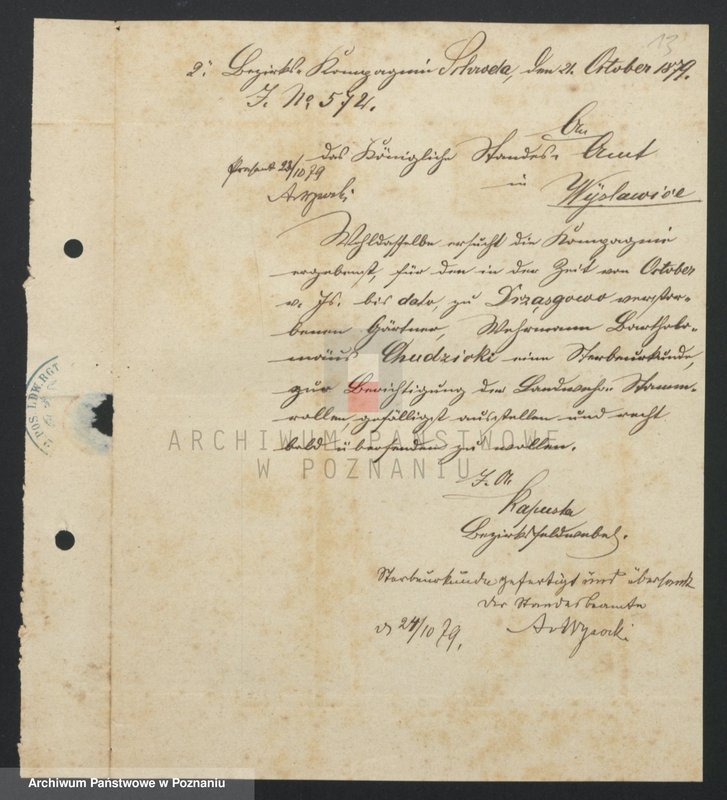 13
2te Bezirks-Kompagnie Schroda, den 21. October 1879.
J. No 572.
An
das Königliche Standes-Amt
in
Wyslawice
Present 23/10 79
Wohldasselbe ersucht die Kompagnie
ergebenst, für den in der Zeit von October
v. Js. bis dato, zu Drzązgowo verstor-
benen Gärtner, Wehrmann Bartholo-
mäus Chudzicki eine Sterbeurkunde,
zur Berichtigung der Landwehr-Stamm-
rollen, gefälligst ausstellen und recht
bald übersenden zu wollen.
J. A.
Kapusta
Bezirksfeldwebel.
Sterbeurkunde gefertigt und übersandt
Der Standesbeamte
d 24/10 79.
POS. LDW. RGT
ARCHIWUM PAŃSTWOWE
W POZNANIU
Archiwum Państwowe w Poznaniu